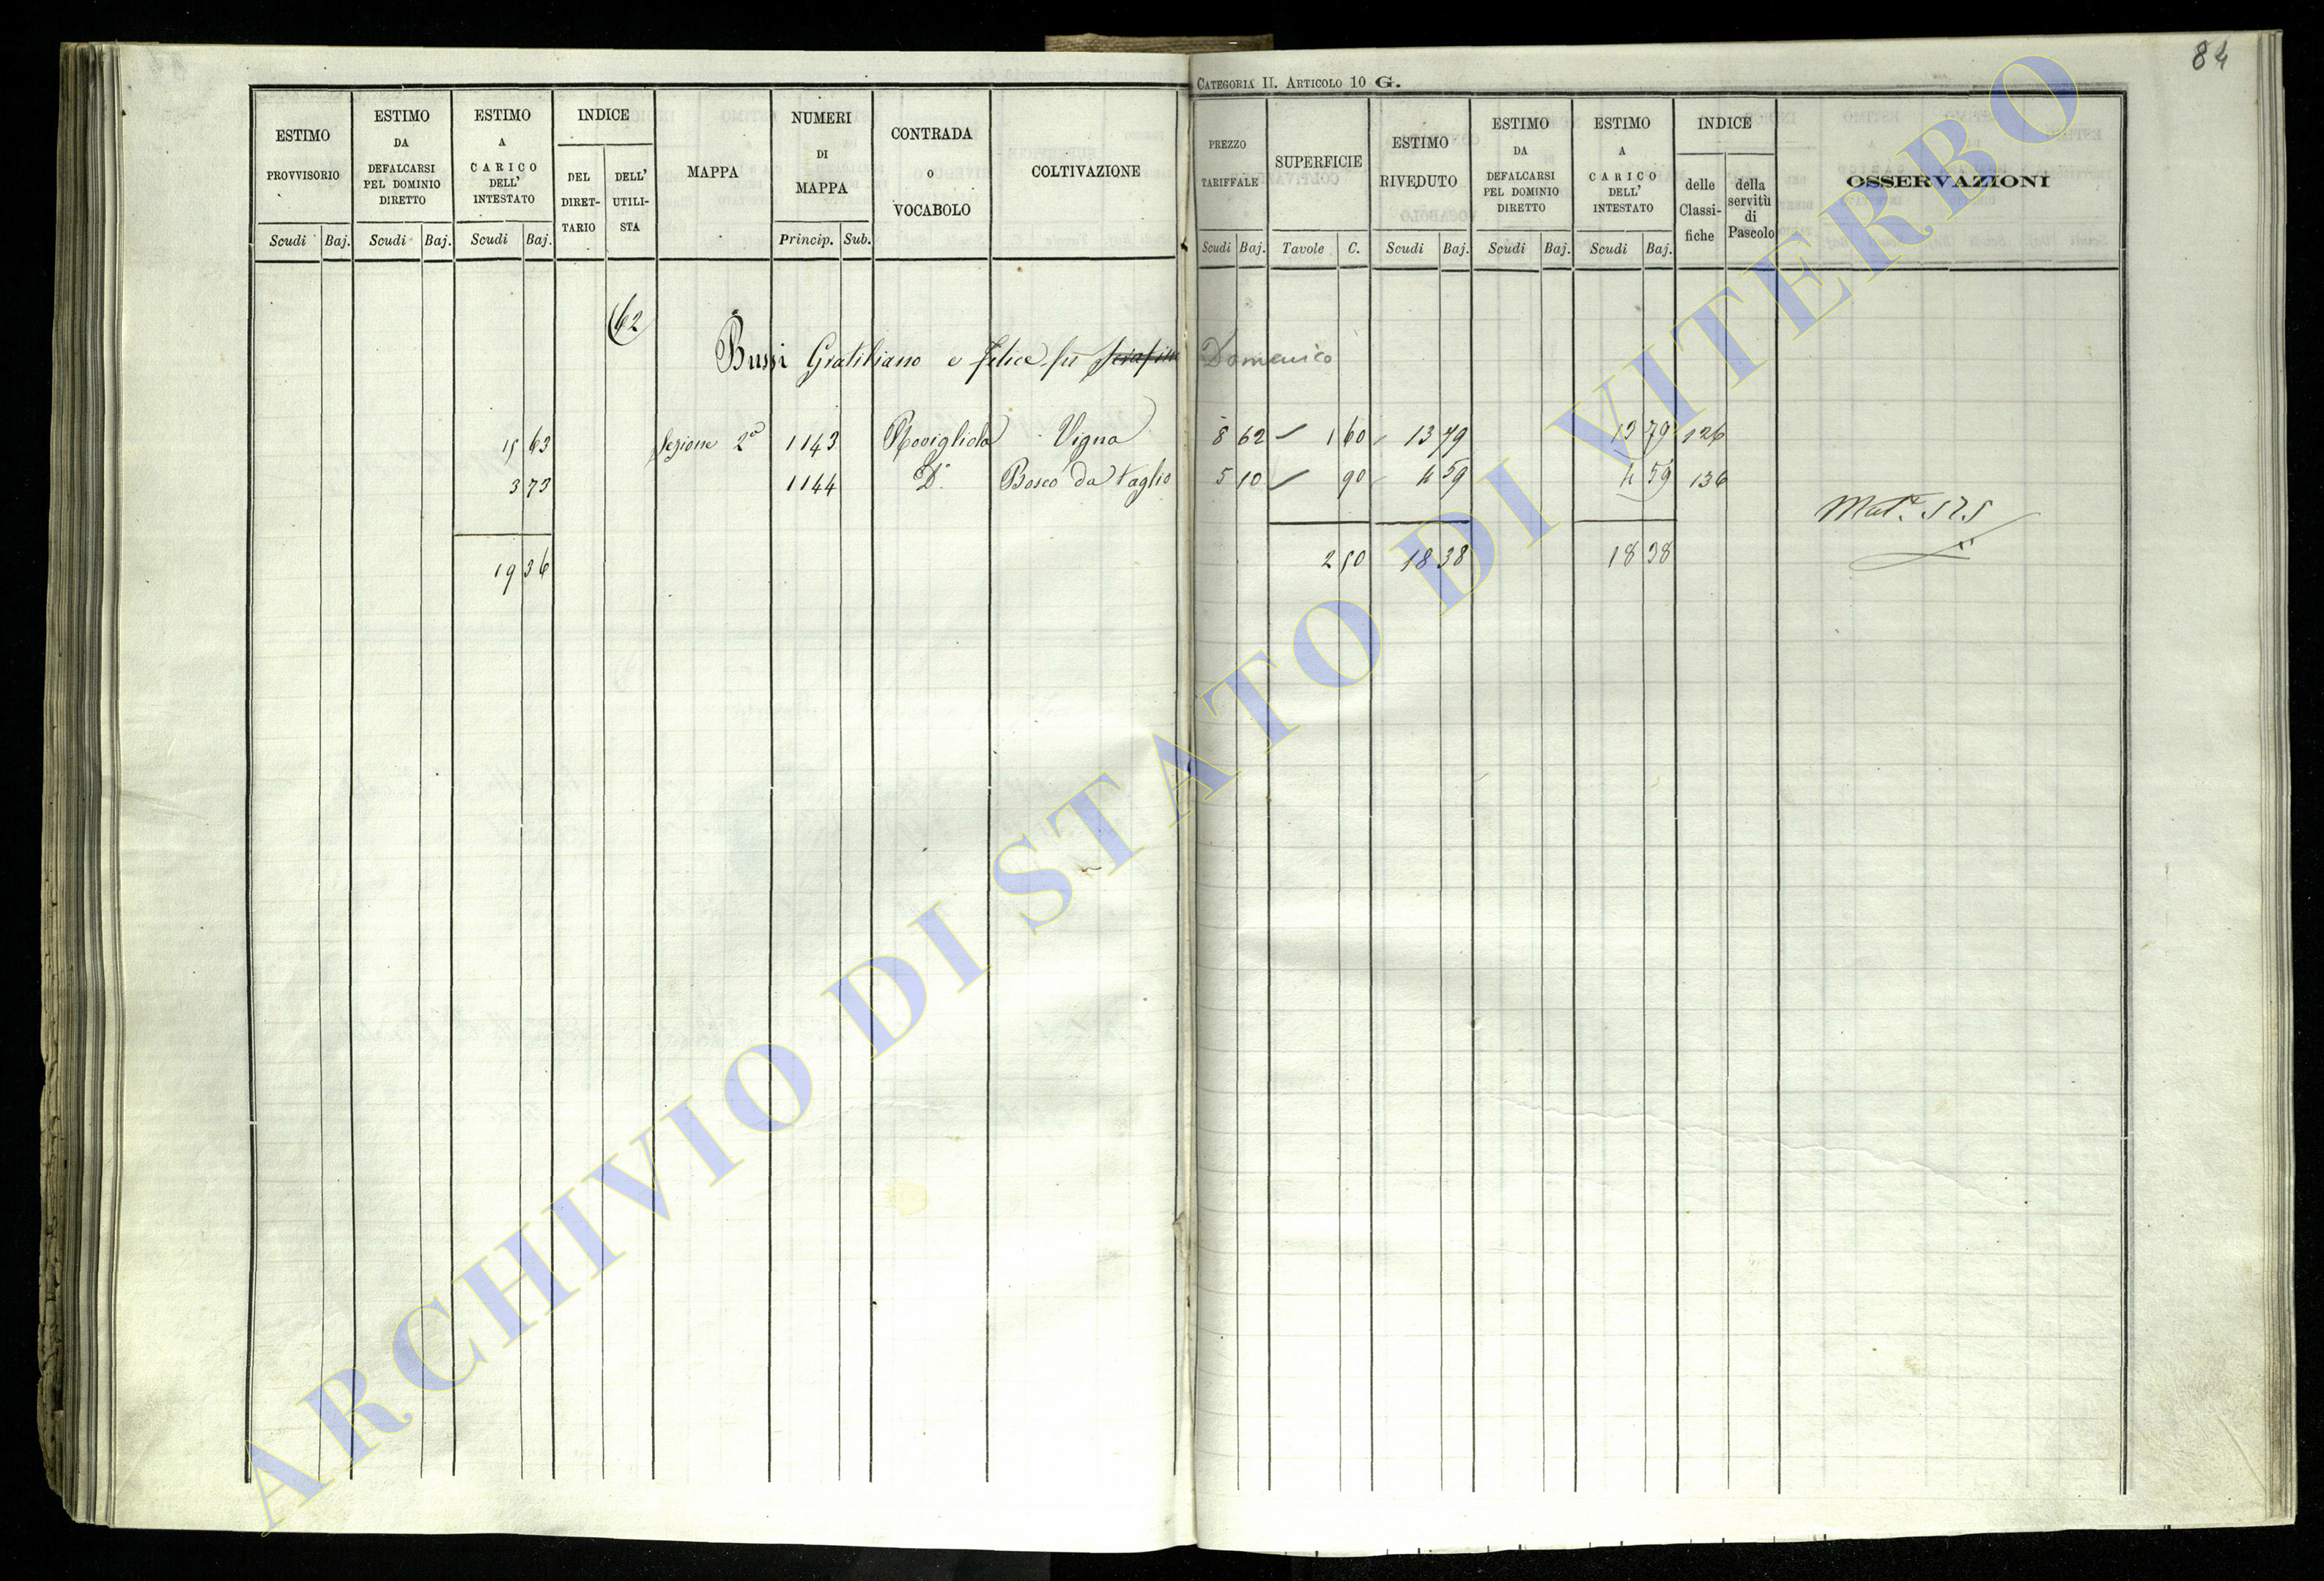 84
CATEGORIA II. ARTICOLO 10 G.
ESTIMO PROVVISORIO
ESTIMO DA DEFALCARSI PEL DOMINIO DIRETTO
ESTIMO A CARICO DELL' INTESTATO
INDICE
DEL DIRET-TARIO
DELL' UTILI-STA
MAPPA
NUMERI DI MAPPA
CONTRADA o VOCABOLO
COLTIVAZIONE
Scudi Baj. Scudi Baj. Scudi Baj. Princip. Sub.
PREZZO TARIFFALE
SUPERFICIE
ESTIMO RIVEDUTO
ESTIMO DA DEFALCARSI PEL DOMINIO DIRETTO
ESTIMO A CARICO DELL' INTESTATO
INDICE
delle Classi-fiche
della servitù di Pascolo
OSSERVAZIONI
Scudi Baj. Tavole C. Scudi Baj. Scudi Baj. Scudi Baj.
62
Bussi Gratiliano e Felice fu Serafino Domenico
15 63 Sezione 2a 1143 Vigna 8 62 1 60 13 79 13 79 126
3 73 1144 Do Bosco da Taglio 5 10 90 4 59 4 59 136
Mat. 525
19 36 2 50 18 38 18 38
ARCHIVIO DI STATO DI VITERBO